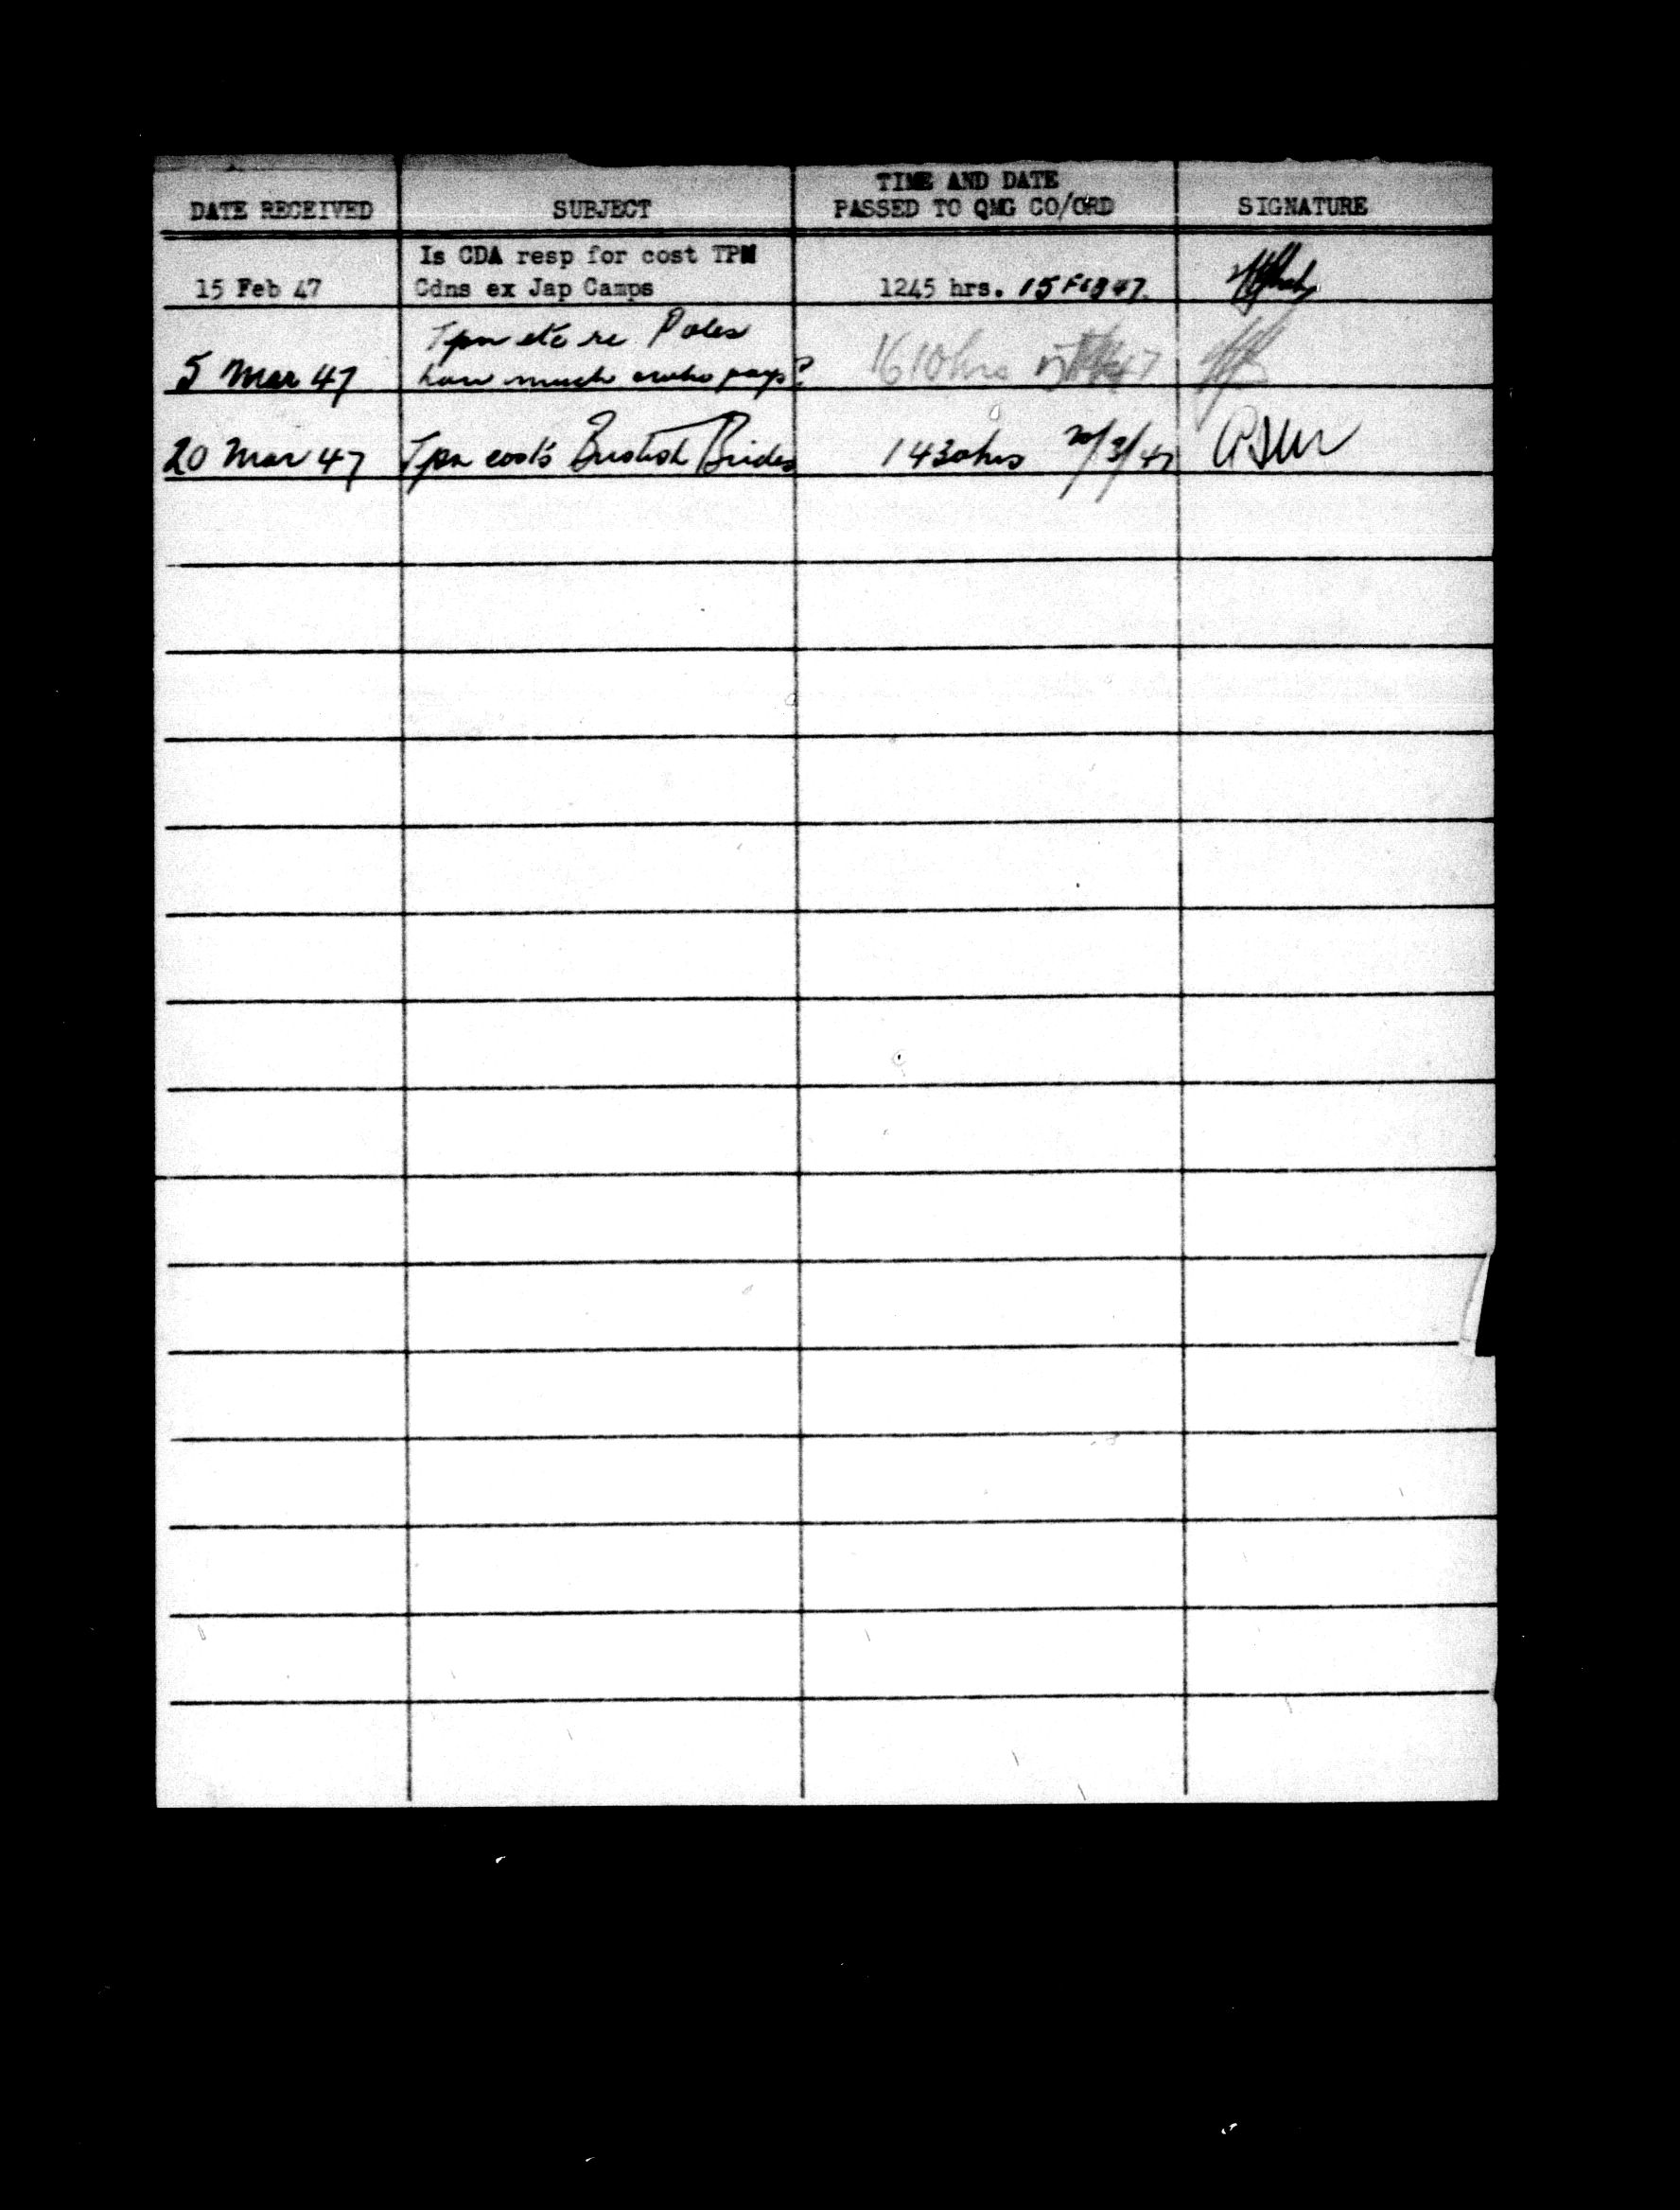 DATE RECEIVED
SUBJECT
TIME AND DATE
PASSED TO QMG CO/ORD
SIGNATURE
15 Feb 47
Is CDA resp for cost TPN
Cdns ex Jap Camps
1245 hrs. 15 FEB 47.
5 Mar 47
Tpn etc re Poles
how much & who pays?
1610 hrs 47
20 Mar 47
Tpn costs British Brides
1430 hrs 20/3/47